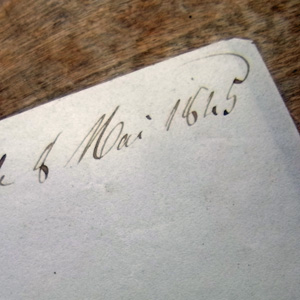 le 8 Mai 1845